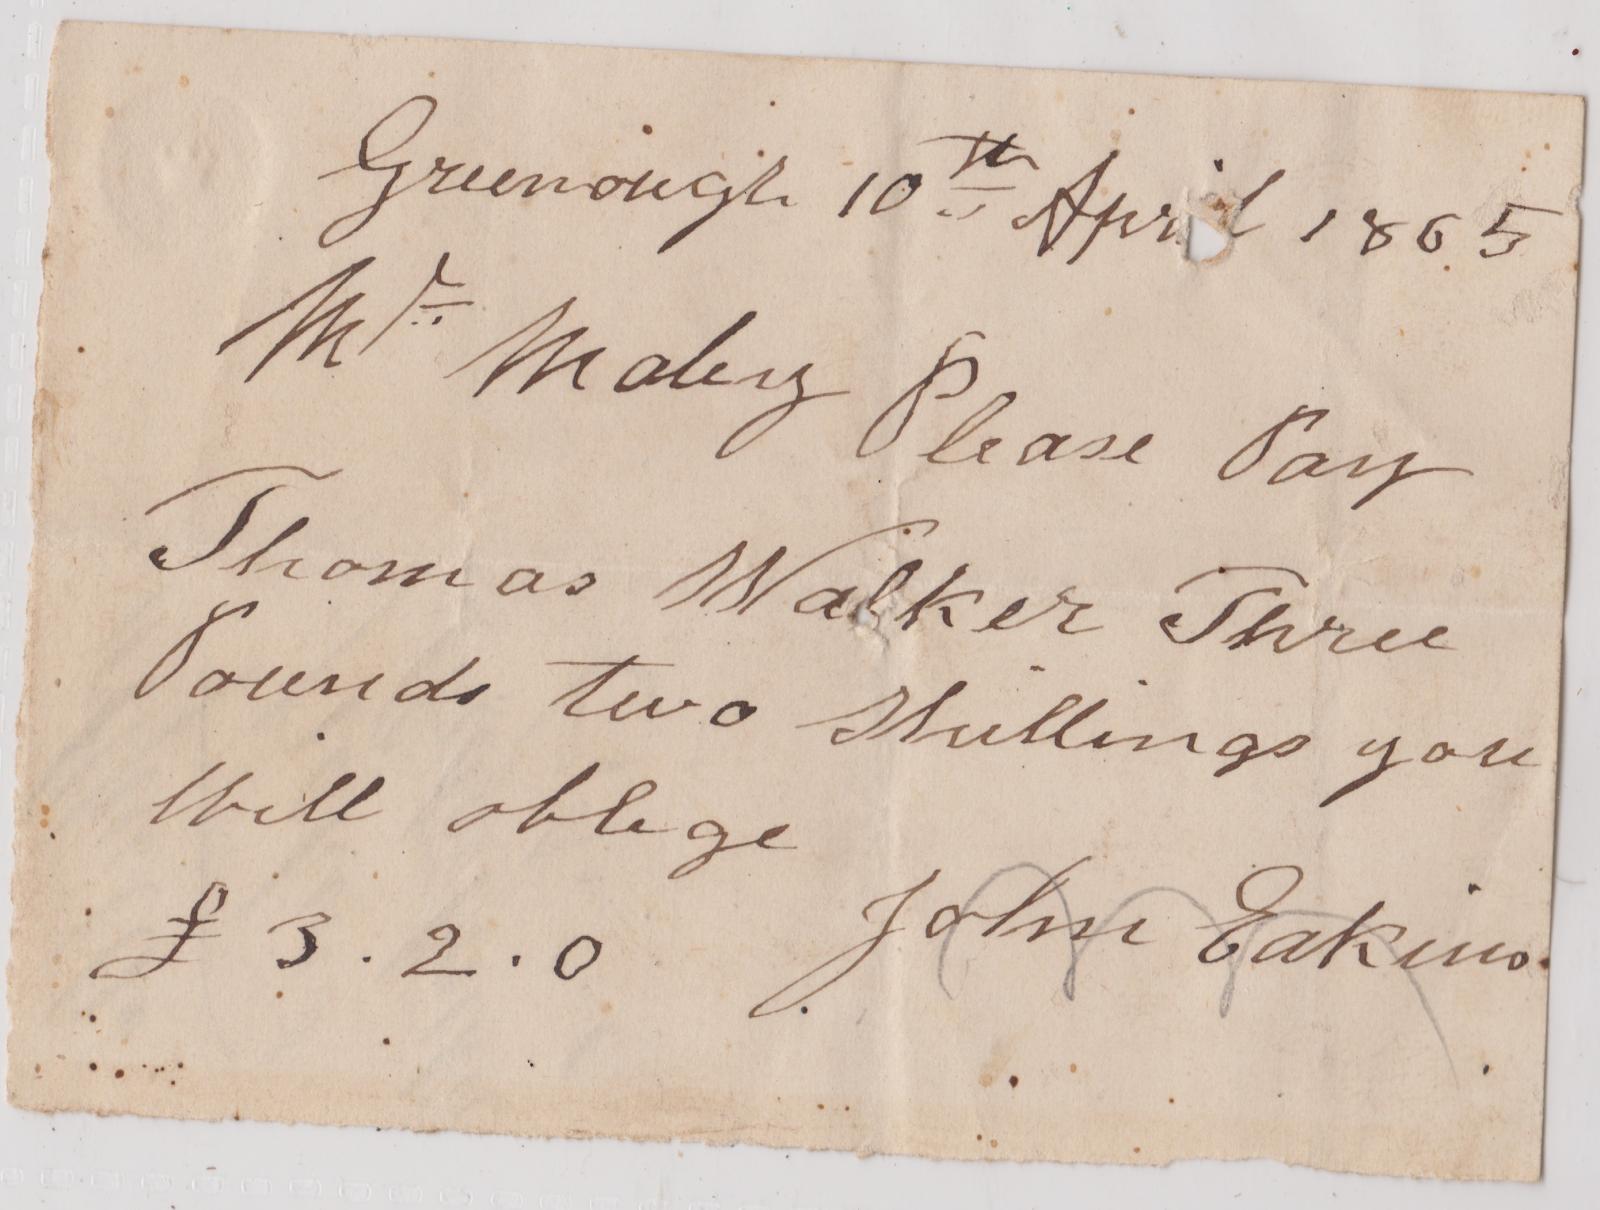 Greenough 10th April 1865
Mr Maley Please Pay
Thomas Walker Three
Pounds two Shillings you
Will oblege
£ 3 . 2 . 0 John Eakins